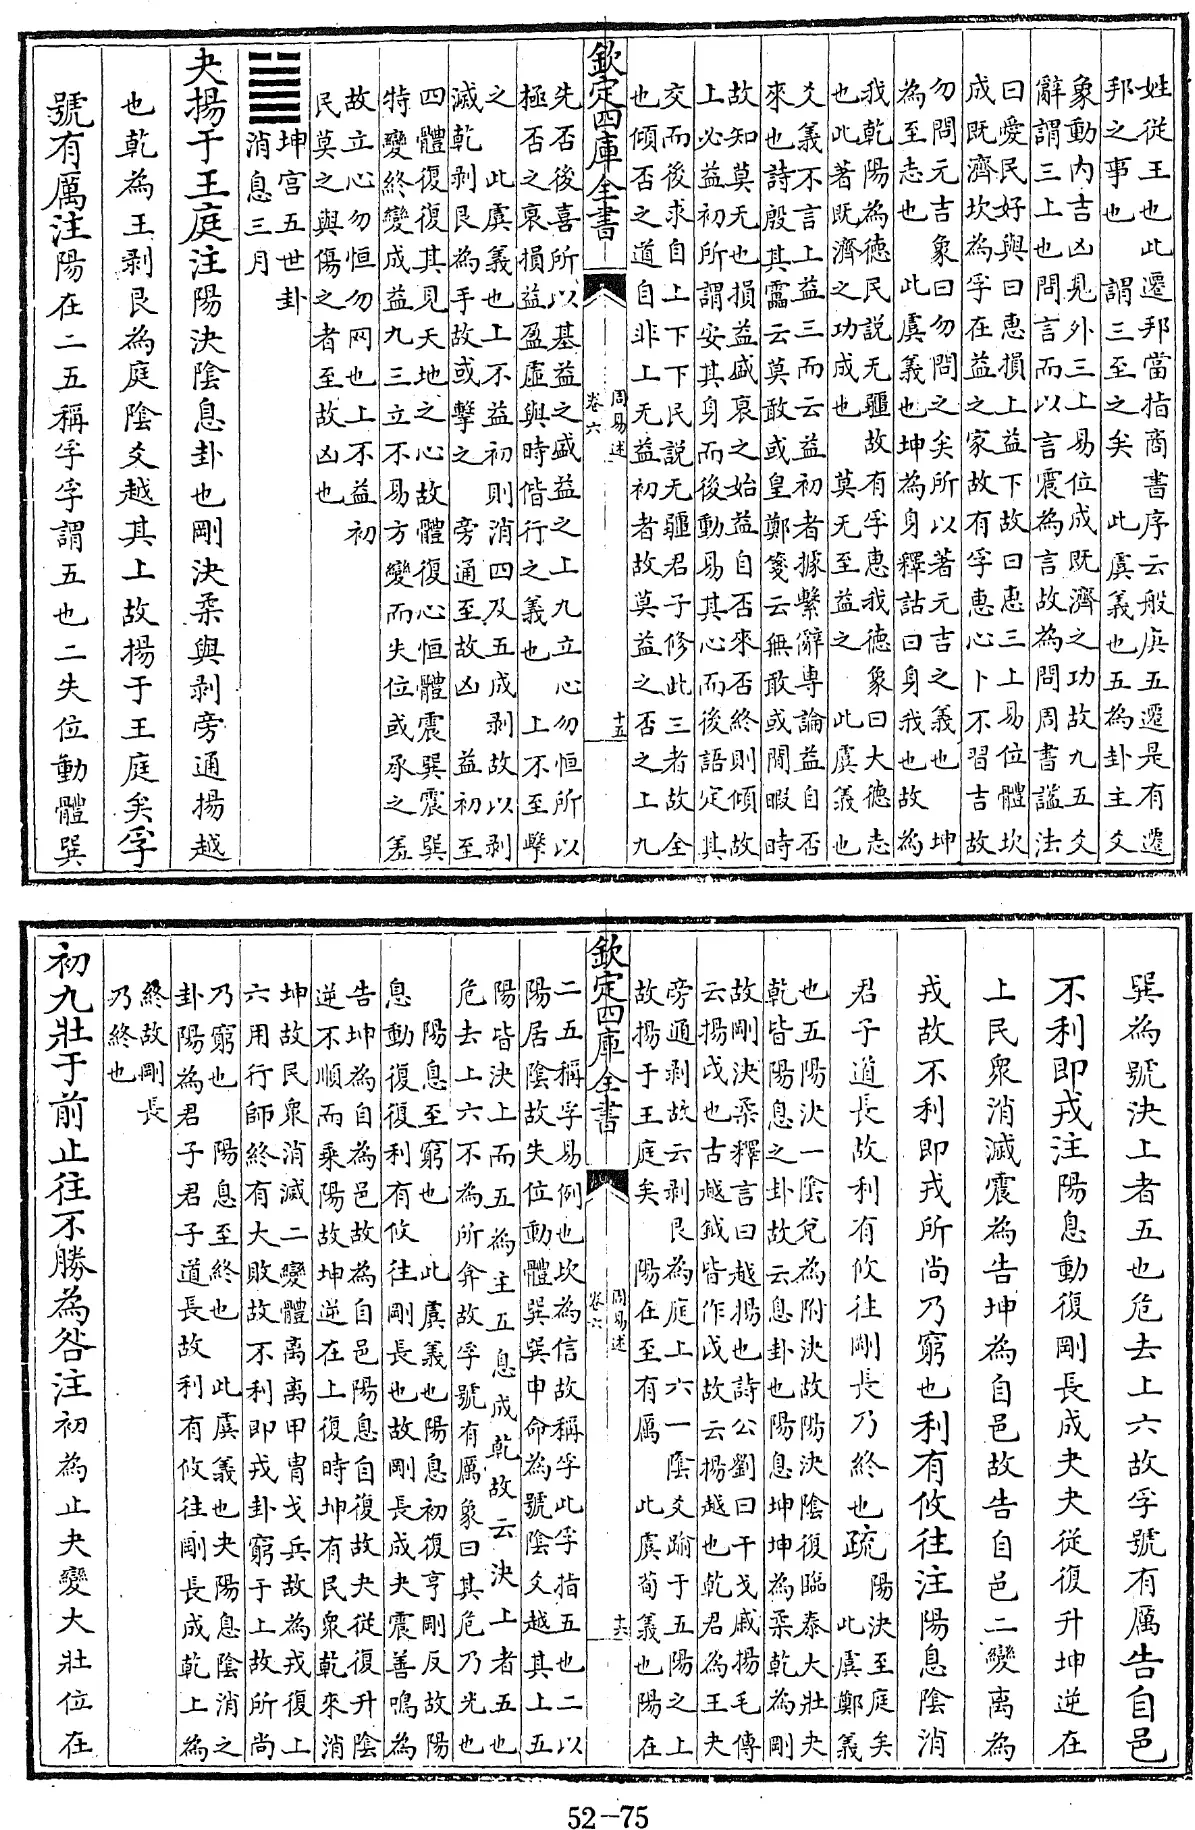 姓從王也此遷邦當指商書序云般庚五遷是有遷
邦之事也　謂三至之矣　此虞義也五為卦主爻
象動内吉凶見外三上易位成既濟之功故九五爻
辭謂三上也問言而以言震為言故為問周書諡法
曰愛民好與曰惠損上益下故曰惠三上易位體坎
成既濟坎為孚在益之家故有孚惠心卜不習吉故
勿問元吉象曰勿問之矣所以著元吉之義也　坤
為至志也　此虞義也坤為身釋詁曰身我也故為
我乾陽為德民說无疆故有孚惠我德象曰大德志
也此著既濟之功成也　莫无至益之　此虞義也
爻義不言上益三而云益初者據繫辭專論益自否
來也詩殷其靁云莫敢或皇鄭箋云無敢或閒暇時
故知莫无也損益盛衰之始益自否來否終則傾故
上必益初所謂安其身而後動易其心而後語定其
交而後求自上下下民說无疆君子修此三者故全
也傾否之道自非上无益初者故莫益之否之上九
欽定四庫全書
周易述
卷六
十五
先否後喜所以基益之盛益之上九立心勿恒所以
極否之衰損益盈虛與時偕行之義也　上不至擊
之　此虞義也上不益初則消四及五成剥故以剥
滅乾剥艮為手故或擊之　旁通至故凶　益初至
四體復復其見天地之心故體復心恒體震巽震巽
特變終變成益九三立不易方變而失位或承之羞
故立心勿恒勿网也上不益初
民莫之與傷之者至故凶也
坤宫五世卦
消息三月
夬揚于王庭注陽決陰息卦也剛決柔與剥旁通揚越
也乾為王剥艮為庭陰爻越其上故揚于王庭矣孚
號有厲注陽在二五稱孚孚謂五也二失位動體巽
巽為號決上者五也危去上六故孚號有厲告自邑
不利即戎注陽息動復剛長成夬夬從復升坤逆在
上民衆消滅震為告坤為自邑故告自邑二變離為
戎故不利即戎所尚乃窮也利有攸往注陽息陰消
君子道長故利有攸往剛長乃終也疏
陽決至庭矣
此虞鄭義
也五陽決一陰兌為附決故陽決陰復臨泰大壯夬
乾皆陽息之卦故云息卦也陽息坤坤為柔乾為剛
故剛決柔釋言曰越揚也詩公劉曰干戈戚揚毛傳
云揚戉也古越鉞皆作戉故云揚越也乾君為王夬
旁通剥故云剥艮為庭上六一陰爻踰于五陽之上
故揚于王庭矣　陽在至有厲　此虞荀義也陽在
欽定四庫全書
周易述
卷六
十六
二五稱孚易例也坎為信故稱孚此孚指五也二以
陽居陰故失位動體巽巽申命為號陰爻越其上五
陽皆決上而五為主五息成乾故云決上者五也
危去上六不為所弇故孚號有厲象曰其危乃光也
陽息至窮也　此虞義也陽息初復亨剛反故陽
息動復復利有攸往剛長也故剛長成夬震善鳴為
告坤為自為邑故為自邑陽息自復故夬從復升陰
逆不順而乘陽故坤逆在上復時坤有民衆乾來消
坤故民衆消滅二變體離離甲胄戈兵故為戎復上
六用行師終有大敗故不利即戎卦窮于上故所尚
乃窮也　陽息至終也　此虞義也夬陽息陰消之
卦陽為君子君子道長故利有攸往剛長成乾上為
終故剛長
乃終也
初九壯于前止往不勝為咎注初為止夬變大壯位在
52-75